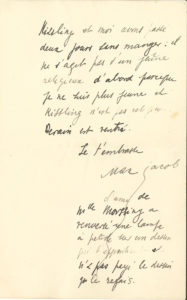 Kissling et moi avons passé
deux jours sans manger: il
ne s'agit pas d'un jeûne
religieux d'abord parceque
je ne suis plus jeune et
Kissling n'est pas
Derain est rentré.
Je t'embrasse
Max Jacob
L'ami de
Mr de Marsting a
renversé une lampe
à pétrole sur un dessin
qui t'appartient et
n'a pas payé le dessin
je le refais.